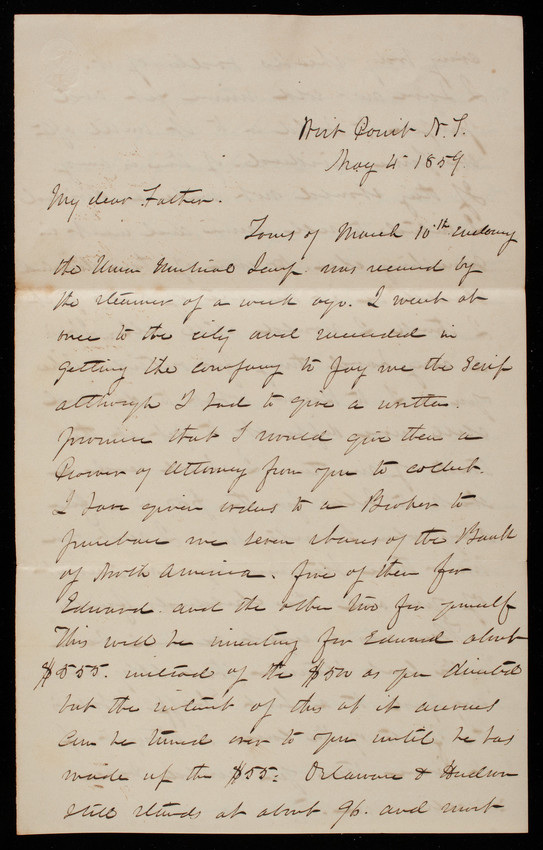 West Point N.Y.
May 4 1859.
My dear Father.
Yours of March 10th enclosing
the Union Mutual Scrip was received by
the steamer of a week ago. I went at
once to the city and succeeded in
getting the company to pay me the Scrip
although I had to give a written
promise that I would give them a
Power of Attorney from you to collect.
I have given orders to a Broker to
purchase me seven shares of the Bank
of North America. five of them for
Edward and the other two for yourself
This will be investing for Edward about
$555. instead of the $500 as you directed
but the interest of this as it accrues
can be turned over to you until he has
made up the $55. Delaware & Hudson
still stands at about 96. and must